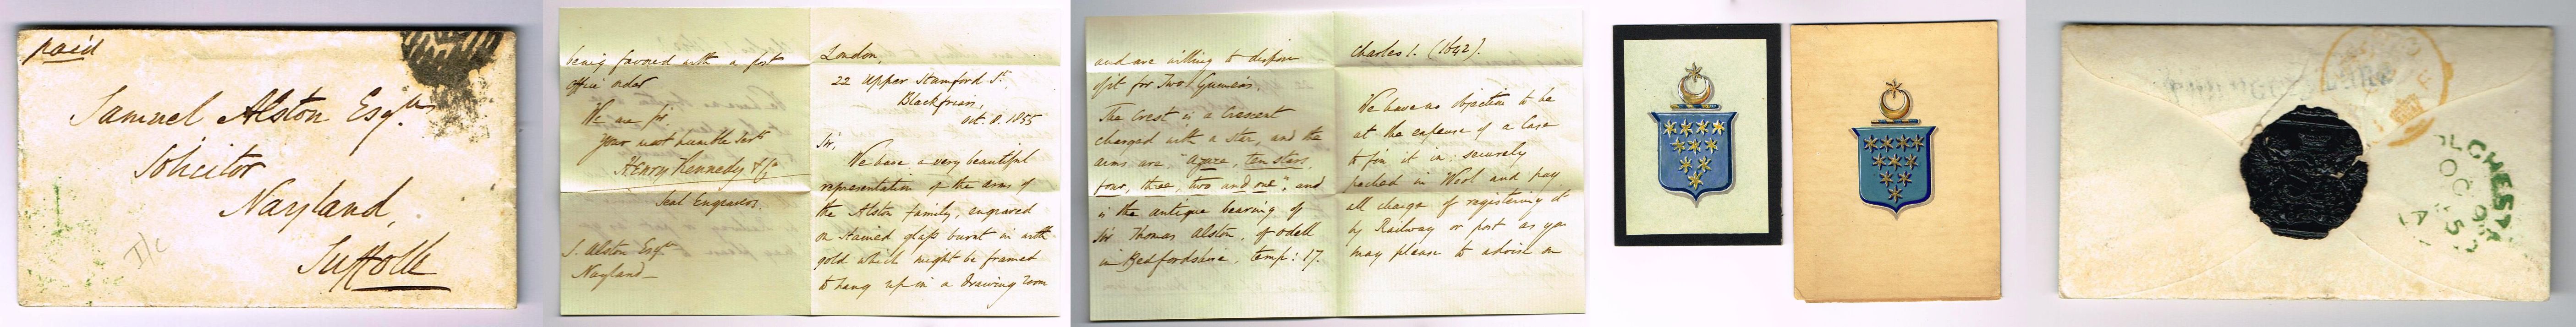 paid
Samuel Alston Esqre
Solicitor
Nayland,
Suffolk
I/C
being favored with a post
office order
We are sir,
Your most humble servts
Henry Kennedy & Co
Seal Engravers.
S. Alston Esqre
Nayland
London,
22 Upper Stamford St.
Blackfriars,
Oct. 8. 1855
Sir,
We have a very beautiful
representation of the arms of
the Alston family, engraved
on stained glass burnt in with
gold which might be framed
to hang up in a drawing room
and are willing to dispose
of it for Two Guineas.
The Crest is a Crescent
charged with a star, and the
arms are, "Azure, ten stars,
four, three, two and one", and
is the antique bearing of
Sir Thomas Alston, of Odell
in Bedfordshire, temp: 17.
Charles 1. (1642).
We have no objection to be
at the expense of a Case
to fix it in: securely
packed in Wool and pay
all charge of registering it
by Railway or post as you
may please to advise on
COLCHESTER
OC 9
A